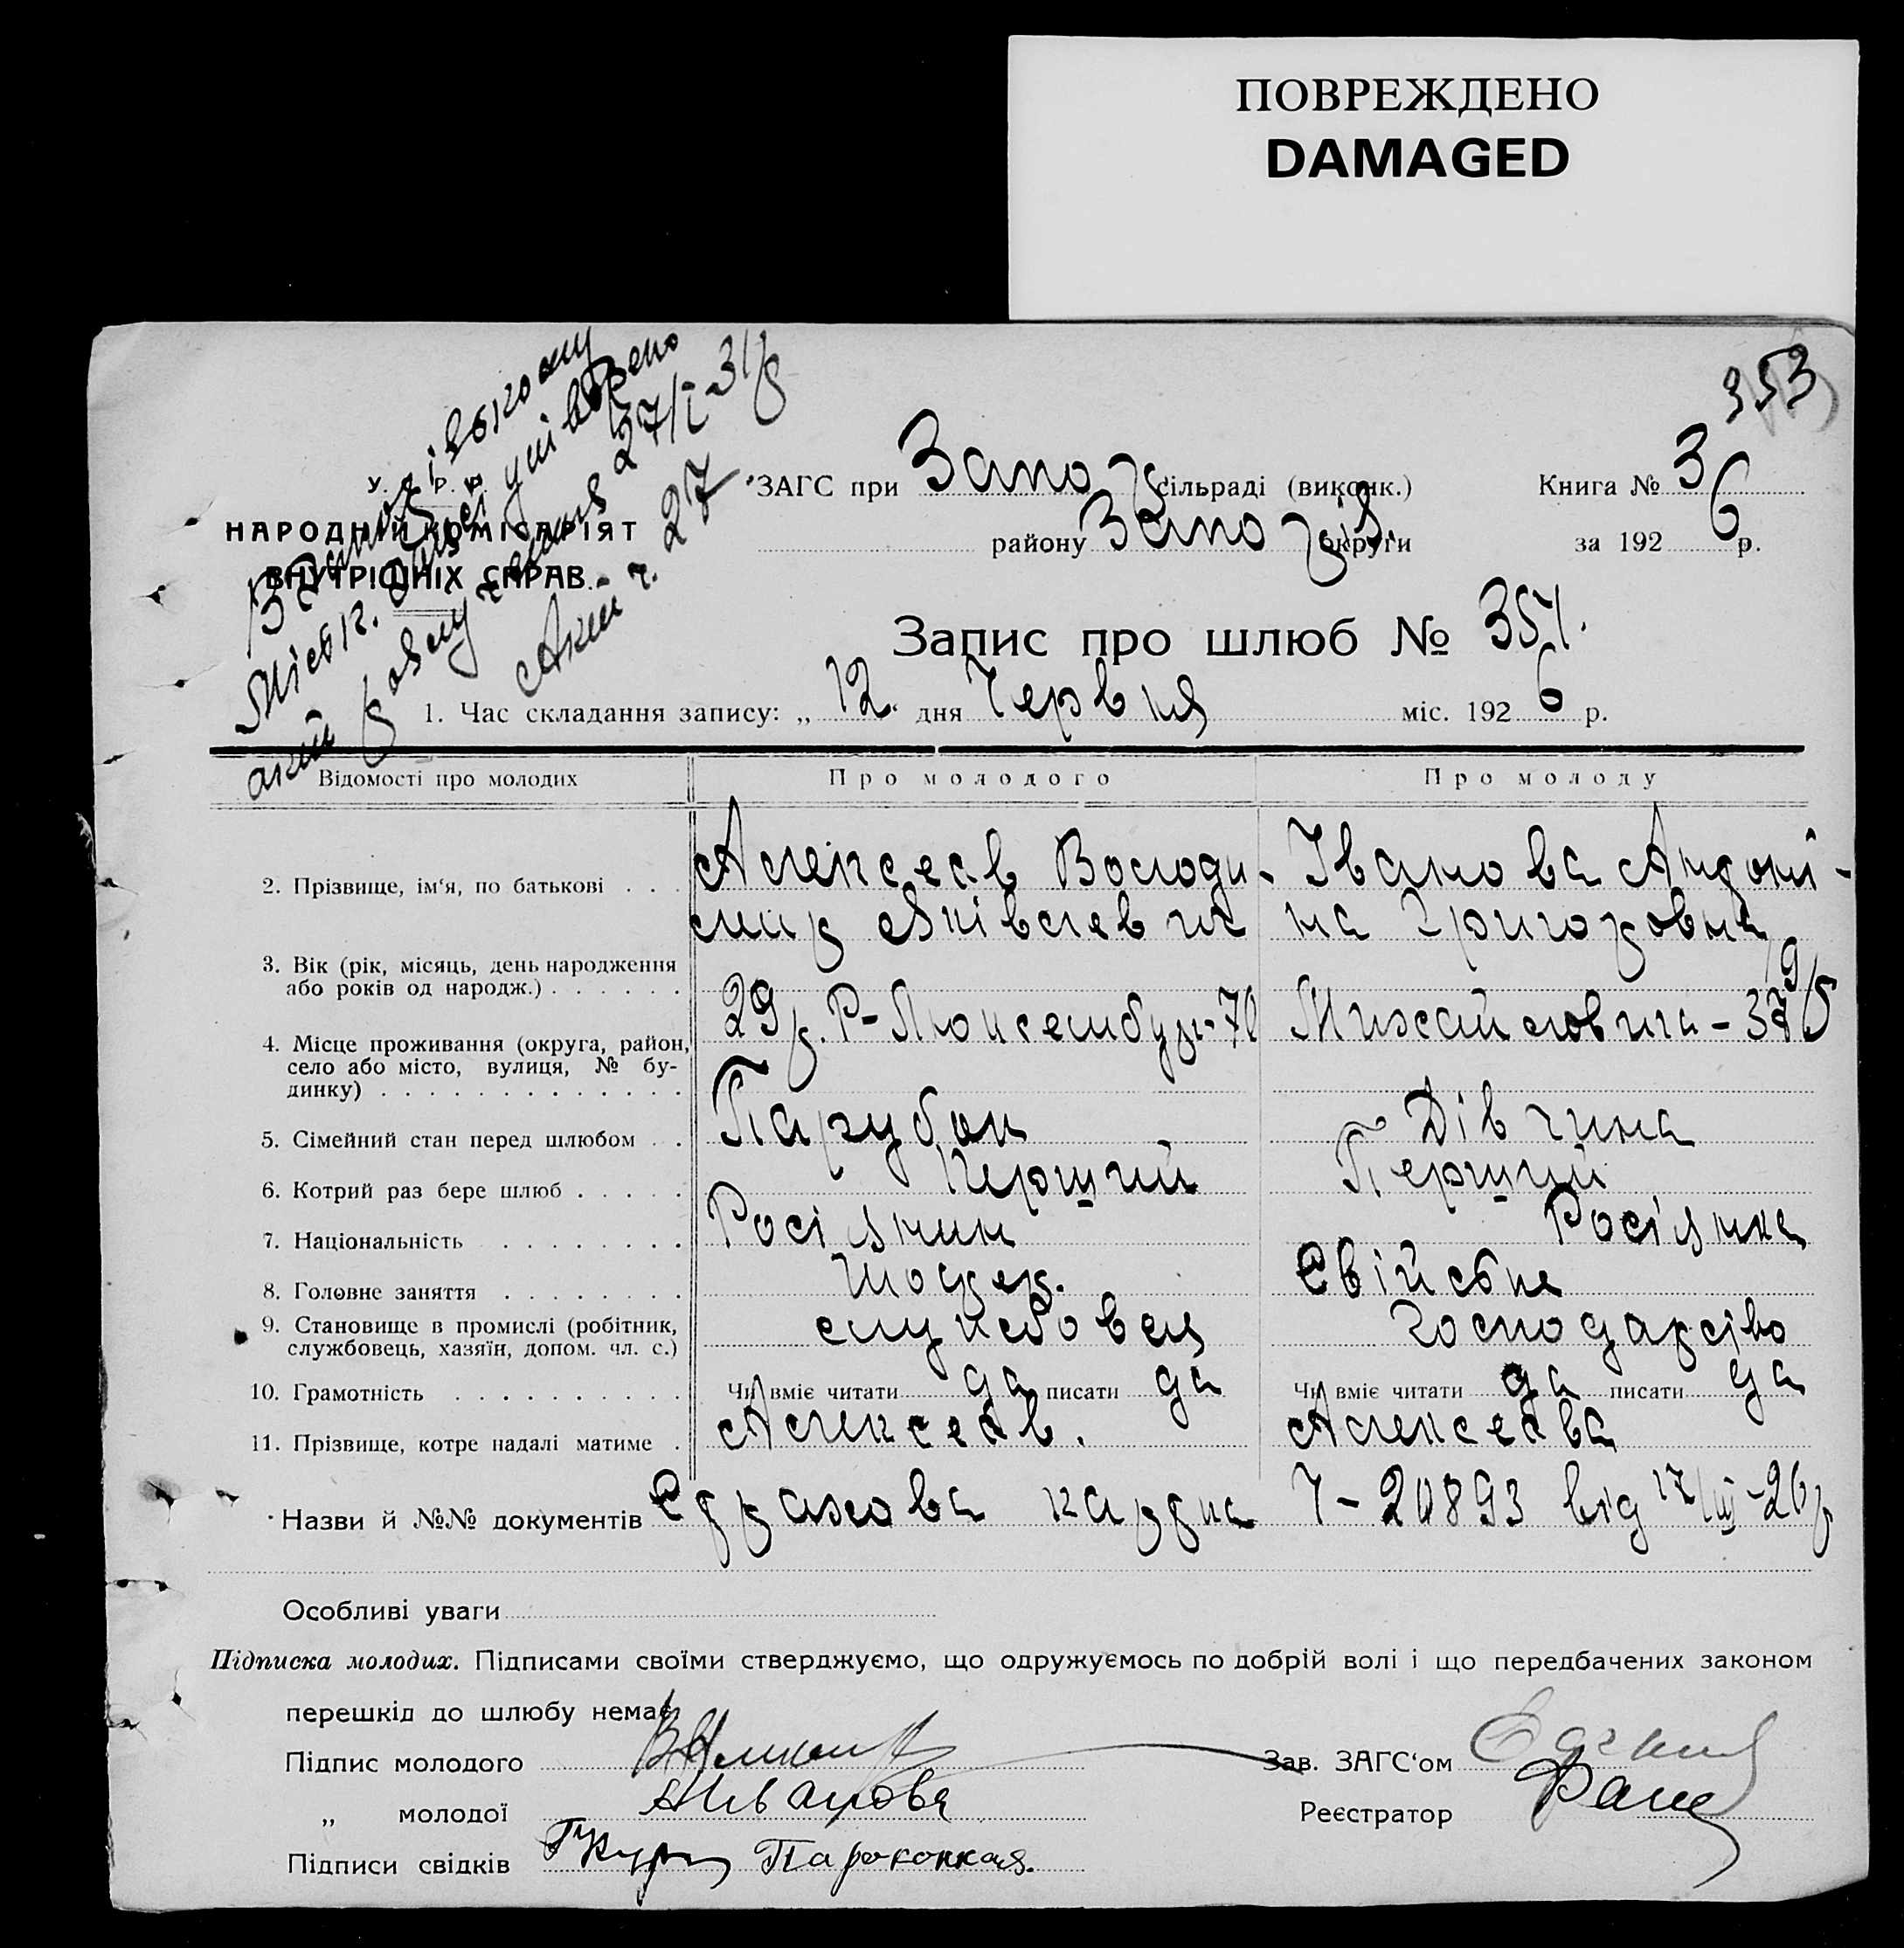 ПОВРЕЖДЕНО
DAMAGED
353
У. С. Р. Р.
НАРОДНІЙ КОМІСАРІЯТ
ВНУТРІШНІХ СПРАВ.
27/I-31р
Акт ч. 27
ЗАГС при Запор сільраді (виконк.)
Книга № 3
району Запорів. округи
за 1926 р.
Запис про шлюб № 351.
1. Час складання запису: „ 12. дня Червня міс. 1926 р.
Відомості про молодих
Про молодого
Про молоду
2. Прізвище, ім'я, по батькові . . .
Алексеєв Володи-
мир Яківлевич
Іванова Андоні-
на Григоровна
3. Вік (рік, місяць, день народження
або років од народж.) . . . . . .
29 р. Р-Люксембург-70
Михайловича-37
4. Місце проживання (округа, район,
село або місто, вулиця, № бу-
динку) . . . . . . . . . . . . .
5. Сімейний стан перед шлюбом . .
Парубок
Дівчина
6. Котрий раз бере шлюб . . . . .
Перший
Перший
7. Національність . . . . . . . .
Росіянин
Росіянка
8. Головне заняття . . . . . . . .
Шофер.
Свійське
9. Становище в промислі (робітник,
службовець, хазяїн, допом. чл. с.)
службовец
господарство
10. Грамотність . . . . . . . . . .
Чи вміє читати да писати да
Чи вміє читати да писати да
11. Прізвище, котре надалі матиме .
Алексеєв.
Алексеєва
Назви й №№ документів Страхова картка 7-20893 від 17/III-26р
Особливі уваги
Підписка молодих. Підписами своїми стверджуємо, що одружуємось по добрій волі і що передбачених законом
перешкід до шлюбу немає.
Підпис молодого
Зав. ЗАГС'ом
„ молодої АИванова
Реєстратор
Підписи свідків